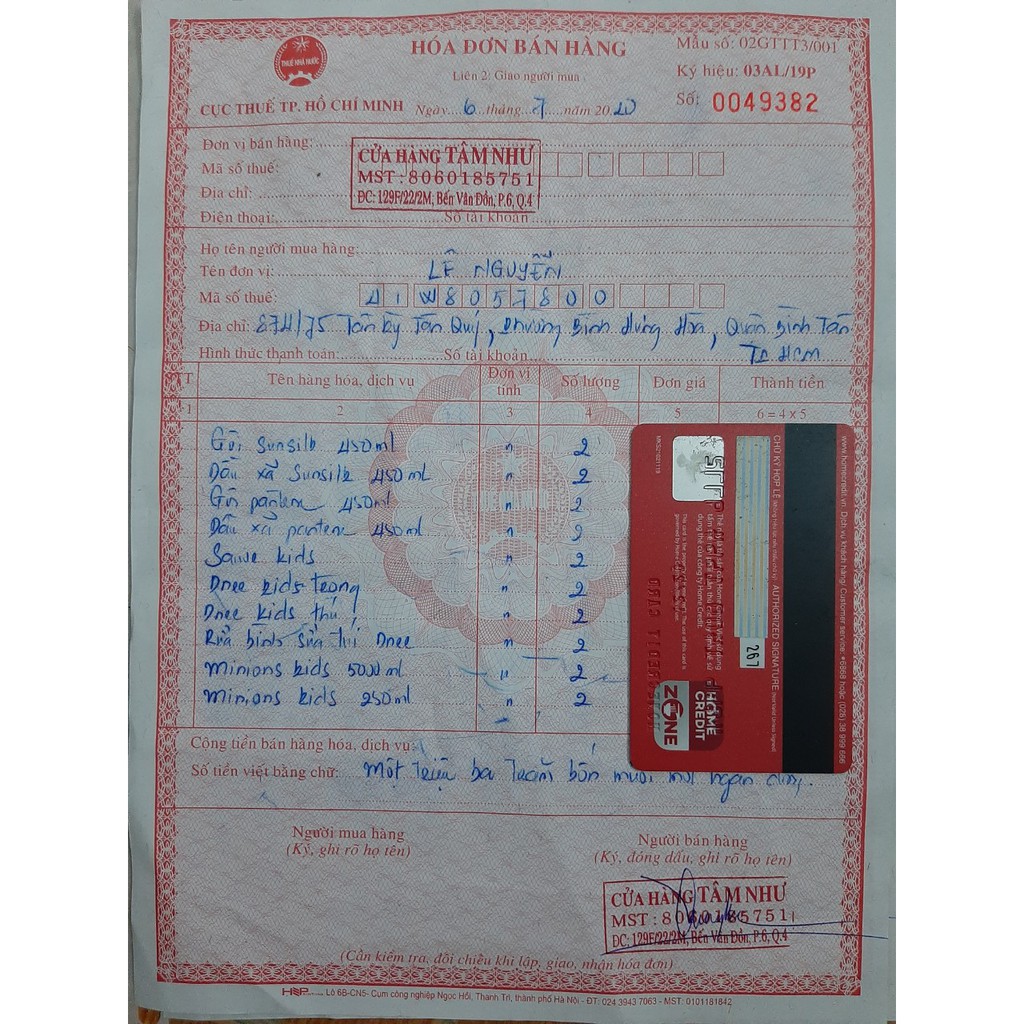 HÓA ĐƠN BÁN HÀNG
Liên 2: Giao người mua
Mẫu số: 02GTTT3/001
Ký hiệu: 03AL/19P
Số: 0049382
THUẾ NHÀ NƯỚC
CỤC THUẾ TP. HỒ CHÍ MINH
Ngày 6 tháng 7 năm 2020
Đơn vị bán hàng:
Mã số thuế:
Địa chỉ:
Điện thoại: Số tài khoản
CỬA HÀNG TÂM NHƯ
MST: 8060185751
ĐC: 129F/22/2M, Bến Vân Đồn, P.6, Q.4
Họ tên người mua hàng:
Tên đơn vị: LÊ NGUYỄN
Mã số thuế: 41W8057800
Địa chỉ: 874/75 Tân Kỳ Tân Quý, Phường Bình Hưng Hòa, Quận Bình Tân
Tp HCM
Hình thức thanh toán: Số tài khoản
TT Tên hàng hóa, dịch vụ Đơn vị tính Số lượng Đơn giá Thành tiền
1 2 3 4 5 6 = 4 x 5
Gội Sunsilk 450ml " 2
Dầu xả Sunsilk 450ml " 2
Gội pantene 450ml " 2
Dầu xả pantene 450ml " 2
kids " 2
Dnee kids trắng " 2
Dnee kids " 2
Rửa bình sữa Dnee " 2
Minions kids 5000ml " 2
Minions kids 250ml " 2
Cộng tiền bán hàng hóa, dịch vụ:
Số tiền viết bằng chữ: Một triệu ba trăm bốn mươi ngàn
Người mua hàng
(Ký, ghi rõ họ tên)
Người bán hàng
(Ký, đóng dấu, ghi rõ họ tên)
CỬA HÀNG TÂM NHƯ
MST: 8060185751
ĐC: 129F/22/2M, Bến Vân Đồn, P.6, Q.4
(Cần kiểm tra, đối chiếu khi lập, giao, nhận hóa đơn)
Lô 6B-CN5- Cụm công nghiệp Ngọc Hồi, Thanh Trì, thành phố Hà Nội - ĐT: 024 3943 7063 - MST: 0101181842
www.homecredit.vn. Dịch vụ khách hàng/ Customer service: *6868 hoặc (028) 38 999 666
CHỮ KÝ HỢP LỆ AUTHORIZED SIGNATURE
HOME CREDIT
ZONE